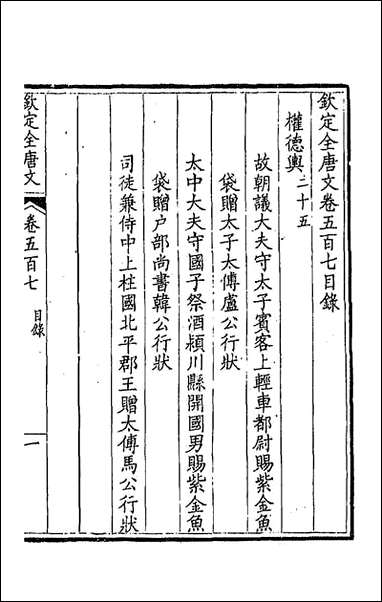 欽定全唐文卷五百七目錄
權德輿二十五
故朝議大夫守太子賓客上輕車都尉賜紫金魚
袋贈太子太傅盧公行狀
太中大夫守國子祭酒潁川縣開國男賜紫金魚
袋贈户部尚書韓公行狀
司徒兼侍中上柱國北平郡王贈太傅馬公行狀
欽定全唐文
卷五百七
目錄
一